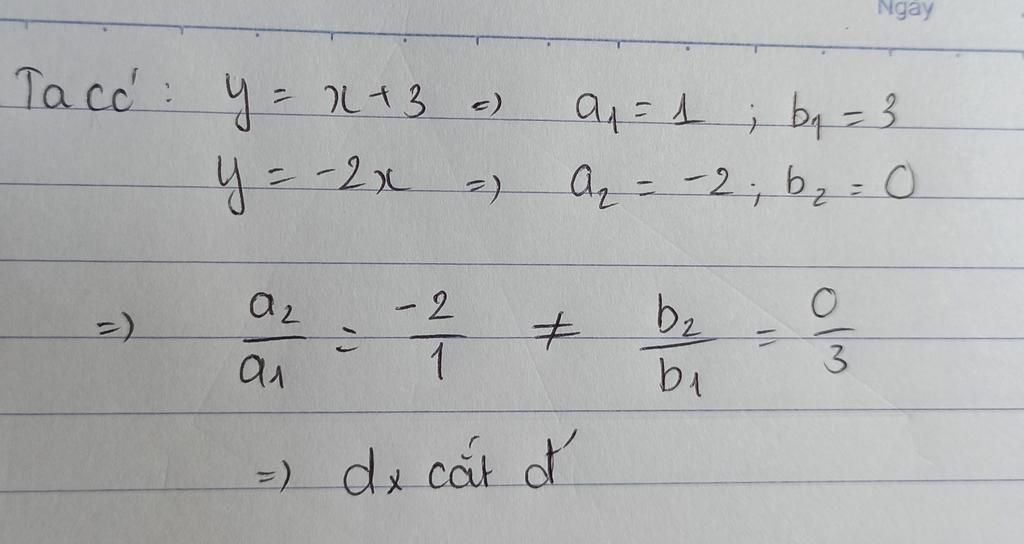 Ngày
Ta có : y = x + 3 => a₁ = 1 ; b₁ = 3
y = -2x => a₂ = -2 ; b₂ = 0
=> a₂/a₁ = -2/1 ≠ b₂/b₁ = 0/3
=> dx cắt d'